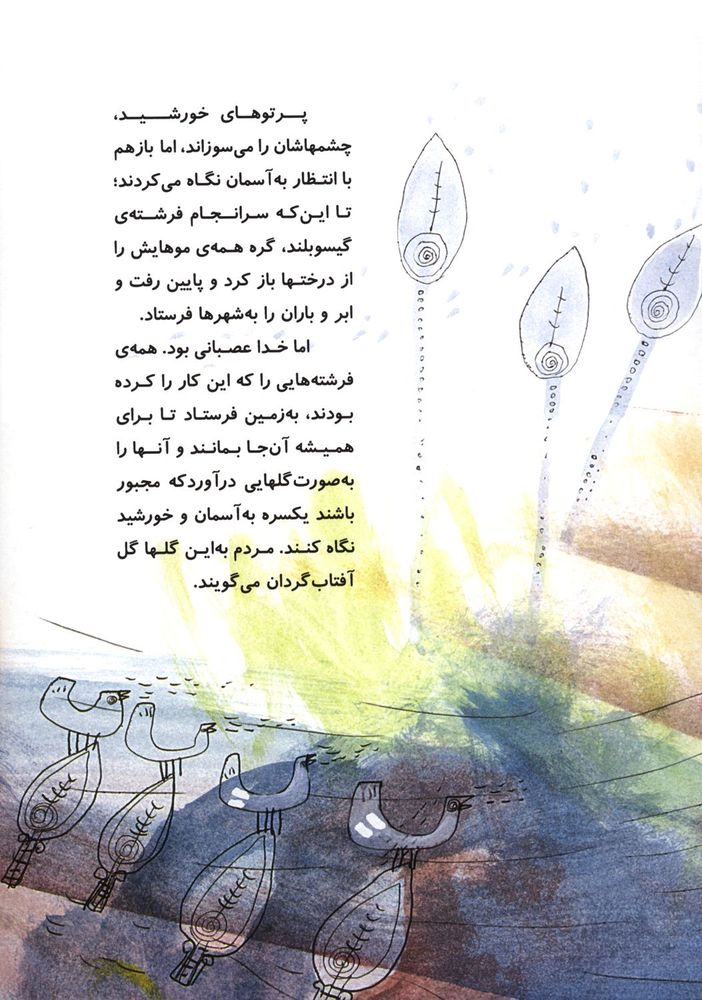 پرتوهای خورشید،
چشمهاشان را می‌سوزاند، اما بازهم
با انتظار به‌آسمان نگاه می‌کردند؛
تا این‌که سرانجام فرشته‌ی
گیسوبلند، گره همه‌ی موهایش را
از درختها باز کرد و پایین رفت و
ابر و باران را به‌شهرها فرستاد.
اما خدا عصبانی بود. همه‌ی
فرشته‌هایی را که این کار را کرده
بودند، به‌زمین فرستاد تا برای
همیشه آن‌جا بمانند و آنها را
به‌صورت گلهایی درآورد که مجبور
باشند یکسره به‌آسمان و خورشید
نگاه کنند. مردم به‌این گلها گل
آفتاب‌گردان می‌گویند.